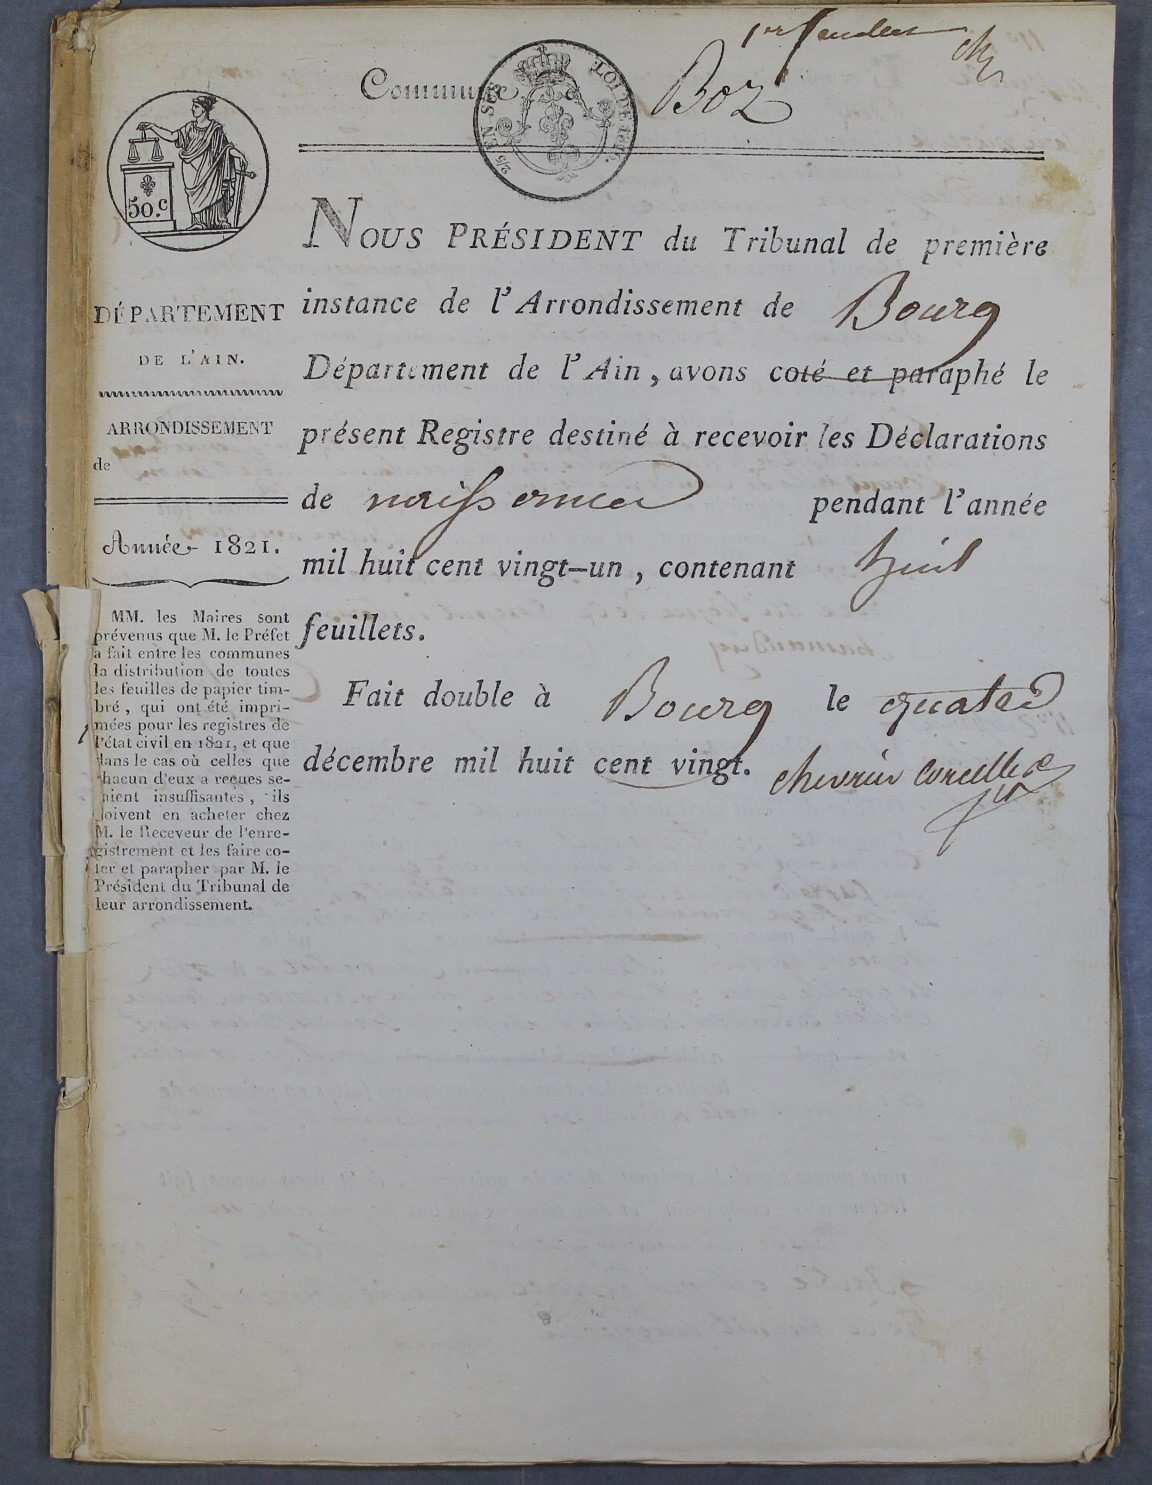 1er feuillet
Commune
Boz
EN SUS
LOI DE 1816.
50.c
NOUS PRÉSIDENT du Tribunal de première
instance de l'Arrondissement de Bourg
Département de l'Ain, avons coté et paraphé le
présent Registre destiné à recevoir les Déclarations
de naissances pendant l'année
mil huit cent vingt-un, contenant huit
feuillets.
Fait double à Bourg le quatre
décembre mil huit cent vingt.
chevrier corcelles
DÉPARTEMENT
DE L'AIN.
ARRONDISSEMENT
de
Année 1821.
MM. les Maires sont
prévenus que M. le Préfet
a fait entre les communes
la distribution de toutes
les feuilles de papier tim-
bré, qui ont été impri-
mées pour les registres de
l'état civil en 1821, et que
dans le cas où celles que
chacun d'eux a reçues se-
raient insuffisantes, ils
doivent en acheter chez
M. le Receveur de l'enre-
gistrement et les faire co-
ter et parapher par M. le
Président du Tribunal de
leur arrondissement.